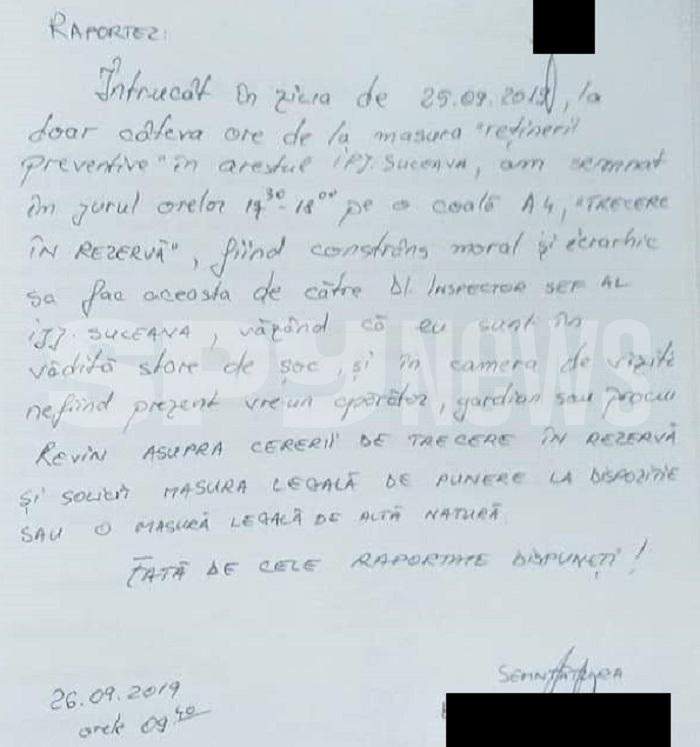 RAPORTEZ:
Întrucât în ziua de 25.09.2019, la
doar câteva ore de la masura "reținerii
preventive" în arestul IPJ. SUCEAVA, am semnat
în jurul orelor 17³⁰-18⁰⁰ pe o coală A4, "TRECERE
ÎN REZERVĂ", fiind constrâns moral și ierarhic
sa fac aceasta de către Dl. INSPECTOR SEF AL
IJJ. SUCEAVA, văzând că eu sunt în
vădită stare de șoc, și în camera de vizite
nefiind prezent vreun apărător, gardian sau procu
REVIN ASUPRA CERERII DE TRECERE ÎN REZERVĂ
ȘI SOLICIT MASURA LEGALĂ DE PUNERE LA DISPOZIȚIE
SAU O MASURĂ LEGALĂ DE ALTĂ NATURĂ
FATĂ DE CELE RAPORTATE DISPUNEȚI!
SPYNEWS
26.09.2019
orele 09⁴⁰
SEMNĂTURA